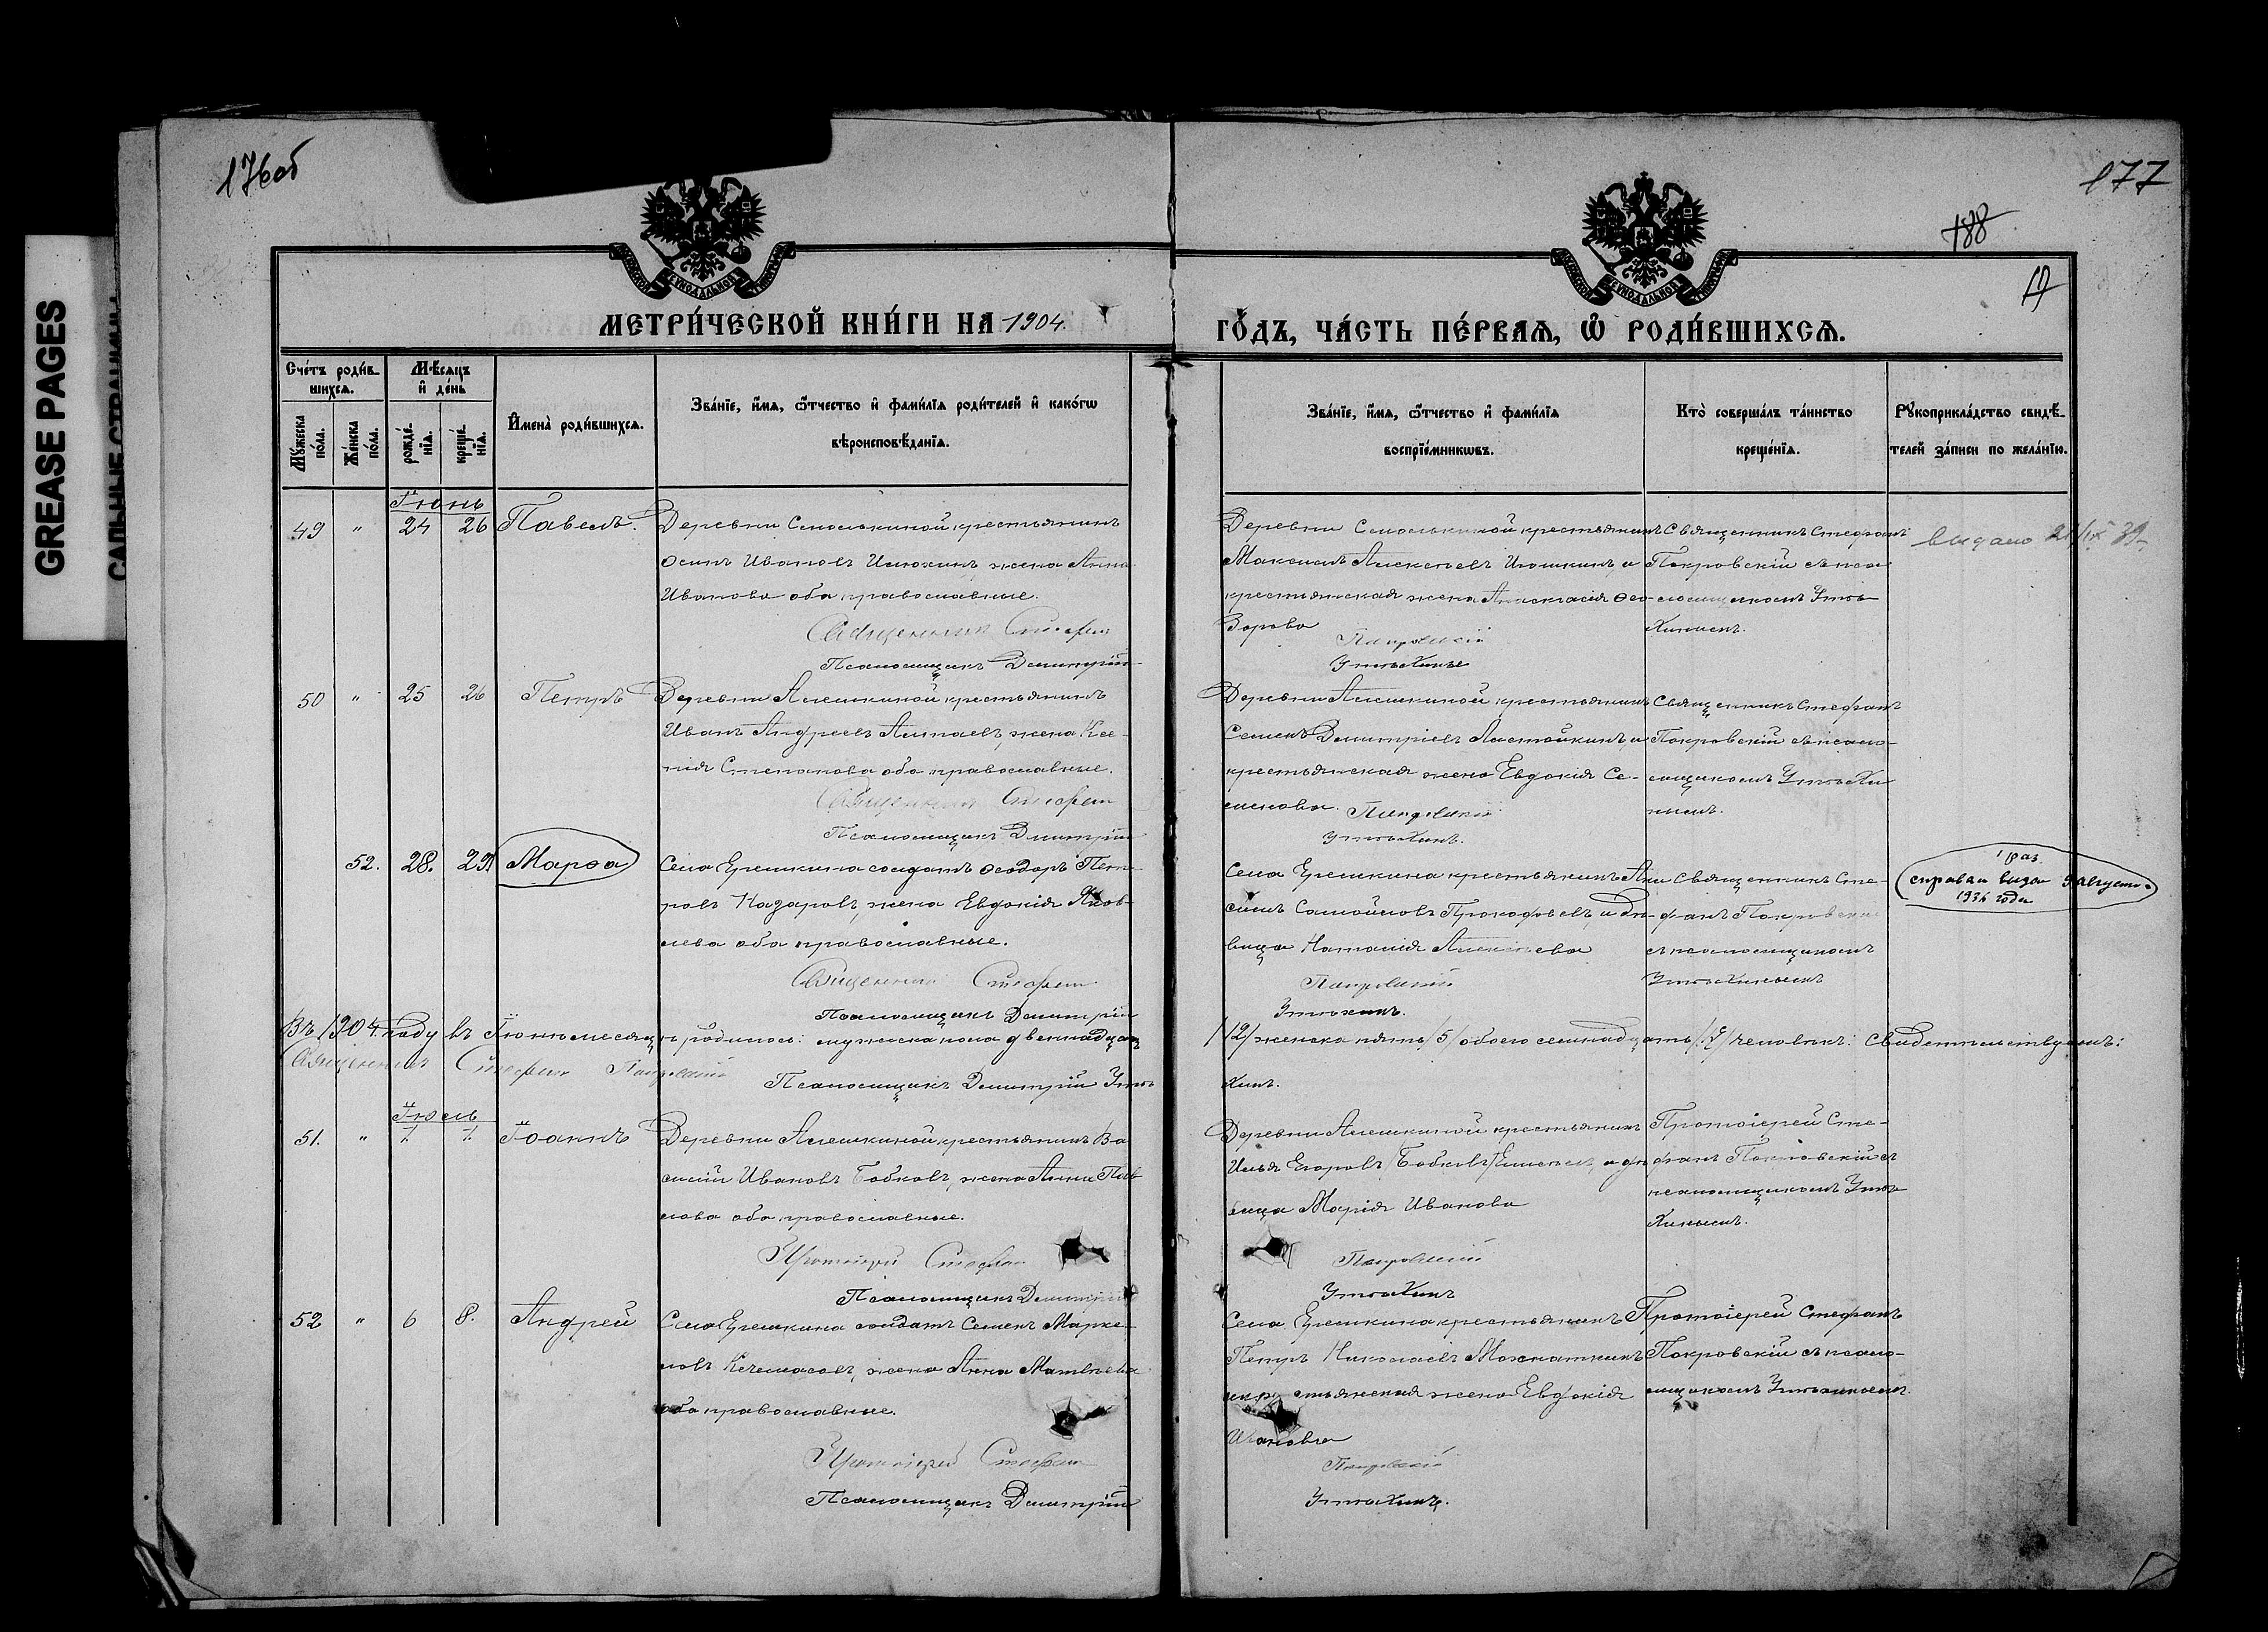 176об
177
188
19
GREASE PAGES
САЛЬНЫЕ СТРАНИЦЫ
МЕТРИ́ЧЕСКОЙ КНИ́ГИ НА 1904.
ГО́ДЪ, ЧА́СТЬ ПЕ́РВАѦ, Ѡ҆ РОДИ́ВШИХСѦ.
Сче́тъ роди́в-
шихсѧ.
Мѣ́сяцъ
и҆ де́нь
Мꙋ́жеска по́ла.
Же́нска по́ла.
рожде́-нїѧ.
креще́-нїѧ.
И҆мена̀ роди́вшихсѧ.
Зва́нїе, и҆́мѧ, ѻ҆́тчество и҆ фами́лїѧ роди́телей и҆ како́гѡ
вѣроисповѣ́данїѧ.
Зва́нїе, и҆́мѧ, ѻ҆́тчество и҆ фами́лїѧ
воспрїе́мникѡвъ.
Кто̀ соверша́лъ та́инство
креще́нїѧ.
Рꙋкоприкла́дство свидѣ́-
телей за́писи по жела́нїю.
Іюнь
49 " 24 26 Павелъ.
Деревни Смолькиной крестьянинъ
Осипъ Ивановъ Илюхинъ, жена Анна
Иванова оба православные.
Священникъ Стефанъ
Псаломщикъ Димитрій
Деревни Смолькиной крестьянинъ
Максимъ Алексѣевъ Июшкинъ, и
крестьянская жена Анастасія Ѳео-
Покровскій
Священникъ Стефанъ
Покровскій съ пса-
ломщикомъ Утѣ-
хинымъ.
выдано 21/IX 39
50 " 25 26 Петръ
Деревни Алешкиной крестьянинъ
Иванъ Андреевъ Алтаевъ, жена Ксе-
нія Степанова оба православные.
Священникъ Стефанъ
Псаломщикъ Димитрій
Деревни Алешкиной крестьянинъ
Семенъ Димитріевъ Ластойкинъ, и
крестьянская жена Евдокія Се-
менова. Покровскій
Утѣхинъ.
Священникъ Стефанъ
Покровскій съ псало-
мщикомъ Утѣхи-
нымъ.
52. 28. 29 Марѳа
Села Еремкина солдатъ Ѳеодоръ Пет-
ровъ Назаровъ, жена Евдокія Яков-
лева оба православные.
Священникъ Стефанъ
Псаломщикъ Димитрій
Села Еремкина крестьянинъ Аки-
симъ Самойловъ Прокофьевъ, и дѣ-
вица Наталія Алексѣева
Покровскій
Утѣхинъ.
Священникъ Сте-
фанъ Покровскій
съ псаломщикомъ
Утѣхинымъ
1 раз
справка выда 9 августа
1936 года
Въ 1904 году въ Іюнѣ месяцѣ родилось: мужска пола двенадцать /12/ женска пять /5/ обоего семнадцать /17/ человѣкъ: Свидетельствуемъ:
Священникъ Стефанъ Покровскій
Псаломщикъ Димитрій Утѣ-
хинъ.
Іюль
51. " 1. 1. Іоаннъ
Деревни Алешкиной крестьянинъ Ва-
силій Ивановъ Бобковъ, жена Анна Пав-
лова оба православные.
Протоіерей Стефанъ
Псаломщикъ Димитрій
Деревни Алешкиной крестьянинъ
Илья Егоровъ /Бобковъ/ и дѣ-
вица Марія Иванова
Покровскій
Утѣхинъ
Протоіерей Сте-
фанъ Покровскій съ
псаломщикомъ Утѣ-
хинымъ.
52 " 6 8. Андрей
Села Еремкина солдатъ Семенъ Марке-
ловъ Кечемасовъ, жена Анна Матвѣева
оба православные.
Протоіерей Стефанъ
Псаломщикъ Димитрій
Села Еремкина крестьянинъ
Петръ Николаевъ Можаткинъ
и крестьянская жена Евдокія
Иванова
Покровскій
Утѣхинъ.
Протоіерей Стефанъ
Покровскій съ псало-
мщикомъ Утѣхинымъ.